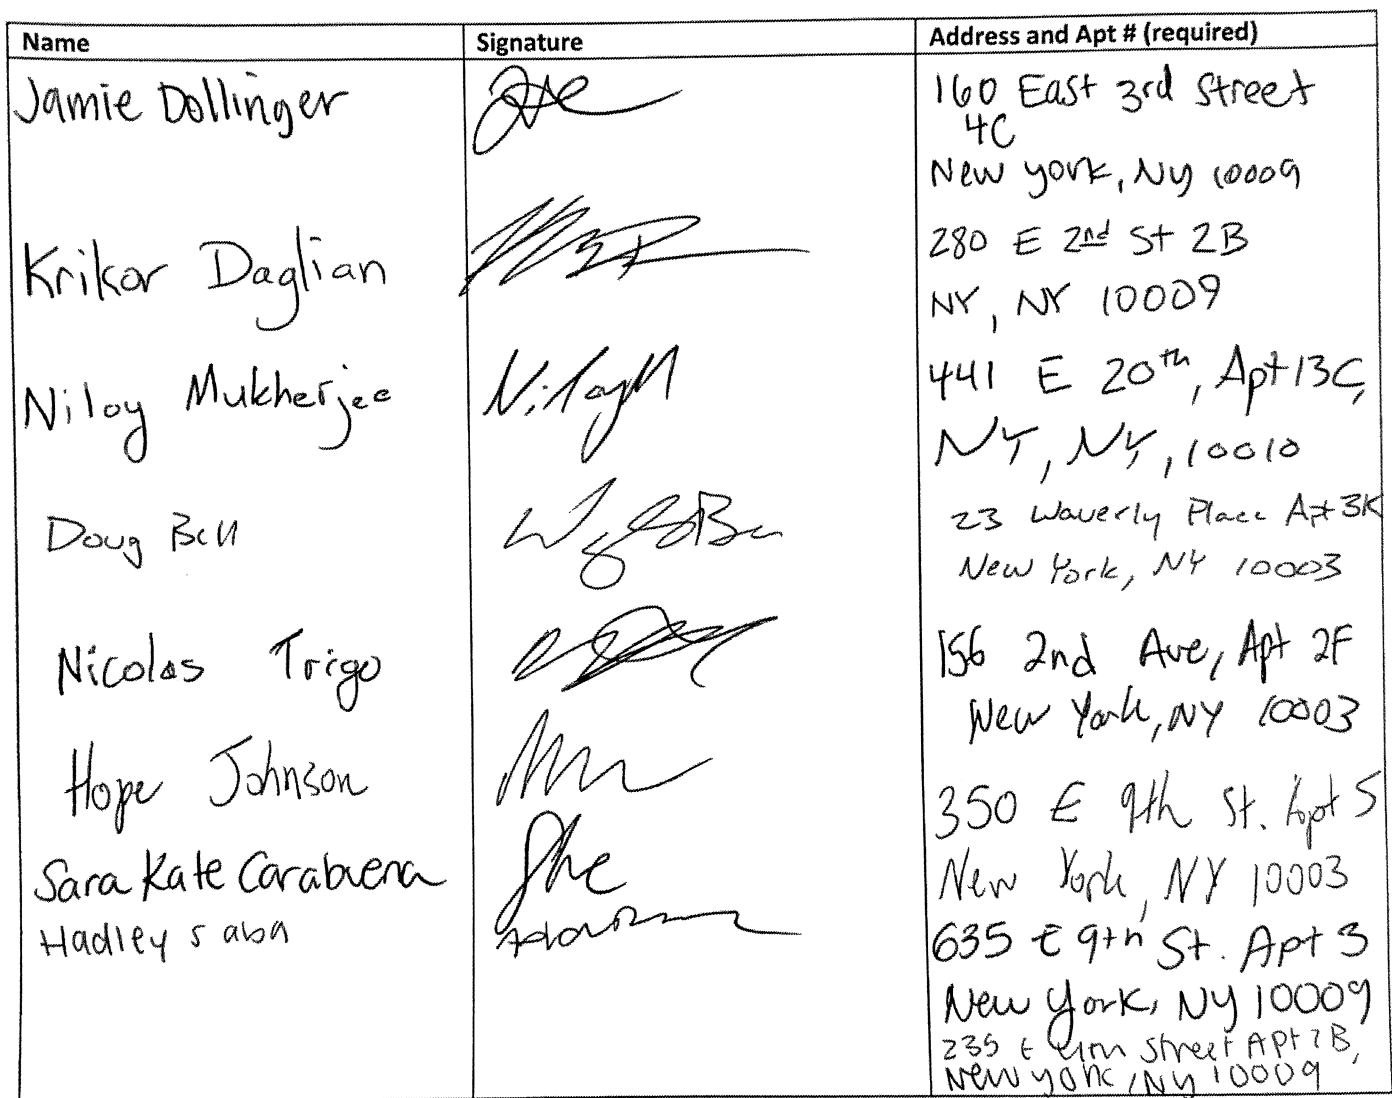 Name Signature Address and Apt # (required)
Jamie Dollinger 160 East 3rd Street
4C
New York, NY 10009
Krikor Daglian 280 E 2nd St 2B
NY, NY 10009
Niloy Mukherjee Niloy M 441 E 20th, Apt 13C,
NY, NY, 10010
Doug Bell 23 Waverly Place Apt 3K
New York, NY 10003
Nicolas Trigo 156 2nd Ave, Apt 2F
New York, NY 10003
Hope Johnson 350 E 9th St. Apt 5
Sara Kate Carabuena New York, NY 10003
Hadley Saba 635 E 9th St. Apt 3
New York, NY 10009
235 E Street Apt B,
New York, NY 10009